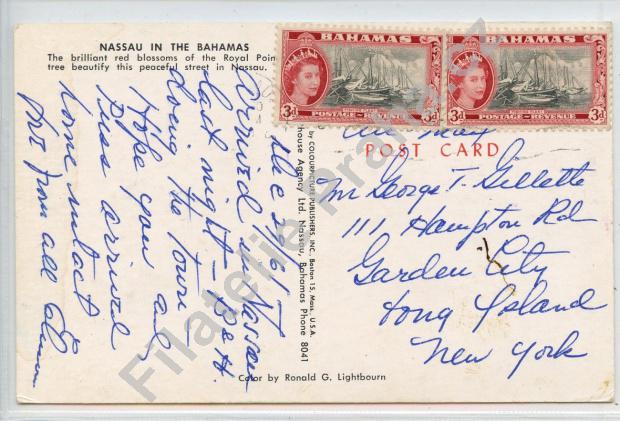 NASSAU IN THE BAHAMAS
The brilliant red blossoms of the Royal Poin
tree beautify this peaceful street in Nassau.
BAHAMAS
3d
POSTAGE - REVENUE
3d
BAHAMAS
3d
POSTAGE - REVENUE
3d
POST CARD
Mr George T. Gillette
111 Hampton Rd
Garden City
Long Island
New York
by COLOURPICTURE PUBLISHERS, INC., Boston 15, Mass., U.S.A.
house Agency Ltd. Nassau, Bahamas Phone 8041
Arrived in Nassau
last night - 
doing the town -
Hope you and
Russ arrived
home intact
from all
Color by Ronald G. Lightbourn
Filatelie Prater